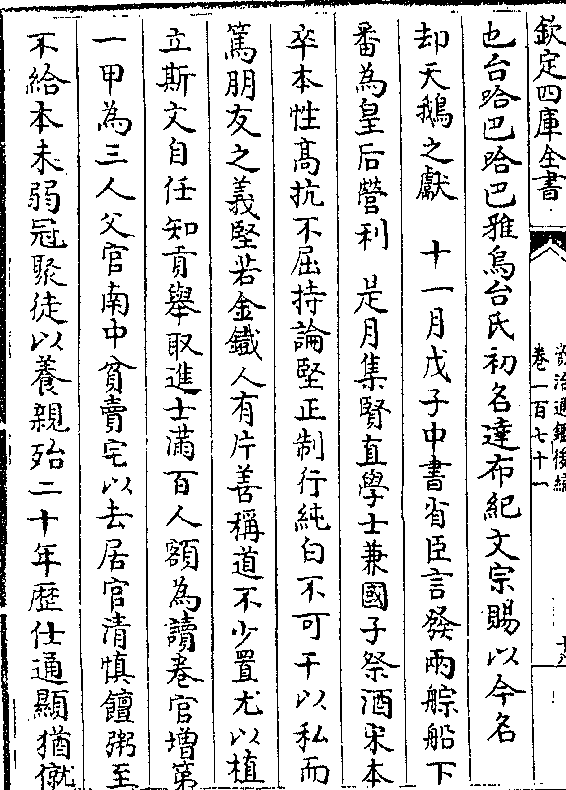 欽定四庫全書
資治通鑑後編
卷一百七十一
十八
也台哈巴哈巴雅烏台氏初名達布紀文宗賜以今名
却天鵝之獻 十一月戊子中書省臣言發兩艅船下
番為皇后營利 是月集賢直學士兼國子祭酒宋本
卒本性髙抗不屈持論堅正制行純白不可干以私而
篤朋友之義堅若金鐵人有片善稱道不少置尤以植
立斯文自任知貢舉取進士滿百人額為讀卷官增第
一甲為三人父官南中貧賣宅以去居官清慎饘粥至
不給本未弱冠聚徒以養親殆二十年歴仕通顯猶僦